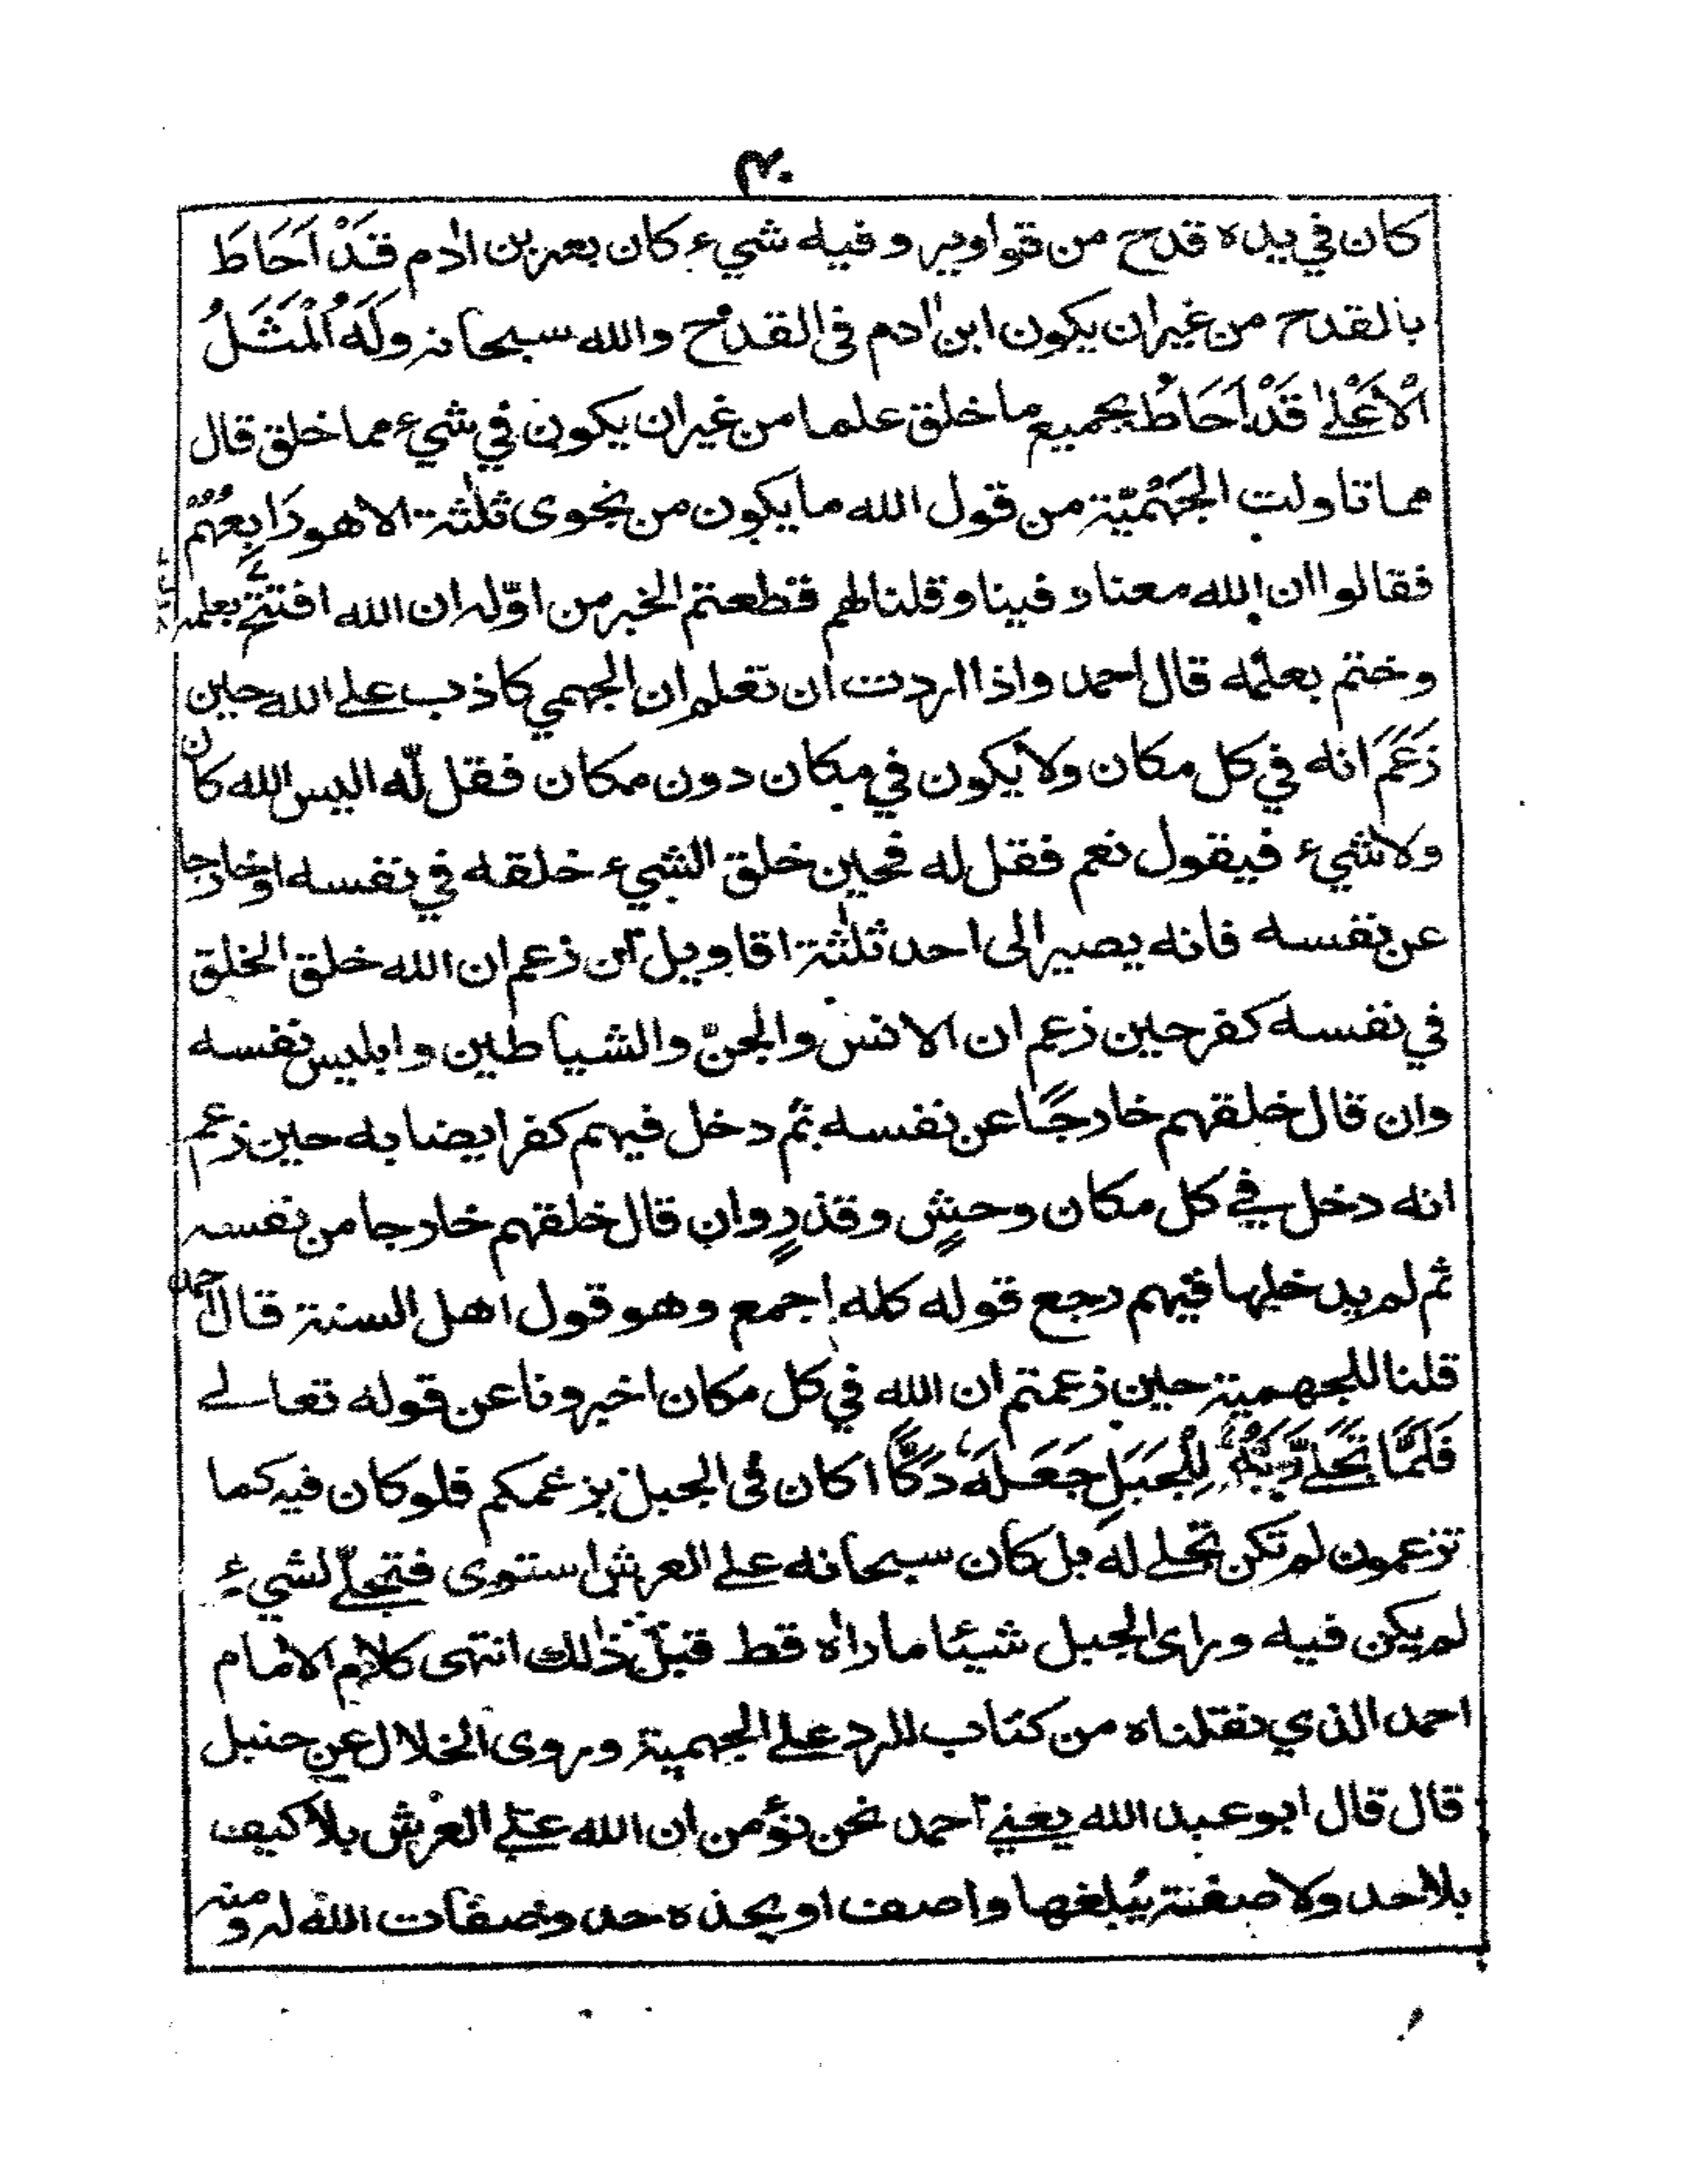 ٣٠
كان في يده قدح من قوارير وفيه شيء كان بصر بن اٰدم قَدْ اَحَاطَ
بالقدح من غير ان يكون ابن اٰدم فى القدح والله سبحانه وَلَهُ الْمَثَلُ
الْاَعْلےٰ قَدْ اَحَاطَ بجميع ما خلق علما من غير ان يكون في شيء مما خلق قال
مما تاولت الجَهَمْيّة من قول الله ما يكون من نجوى ثلٰثة الا هو رَابِعُهُمْ
فقالوا ان الله معنا وفينا وقلنا لهم قطعتم الخبر من اوّله ان الله افتتح بعلمه
وختم بعلمه قال احمد واذا اردت ان تعلم ان الجهمي كاذب علے الله حين
زَعَمَ انه في كل مكان ولا يكون في مكان دون مكان فقل لّه اليس الله كان
ولا شيء فيقول نعم فقل له فحين خلق الشيء خلقه في نفسه او خارجا
عن نفسه فانه يصير الى احد ثلٰثة اقاويل ان زعم ان الله خلق الخلق
في نفسه كفر حين زعم ان الانس والجنّ والشياطين وابليس نفسه
وان قال خلقهم خارجًا عن نفسه ثم دخل فيهم كفر ايضا به حين زعم
انه دخل في كل مكان وحشٍ وقذرٍ وان قال خلقهم خارجا من نفسه
ثم لم يدخلها فيهم رجع قوله كله اجمع وهو قول اهل السنة قال احمد
قلنا للجهمية حين زعمتم ان الله في كل مكان اخبرونا عن قوله تعالے
فَلَمَّا تَجَلّےٰ رَبُّهُ لِلْجَبَلِ جَعَلَهُ دَكًّا اكان فى الجبل بزعمكم فلو كان فيه كما
تزعمون لم تكن تجلے له بل كان سبحانه علے العرش استوى فتجلّے لشيء
لم يكن فيه وراى الجبل شيئا ما راٰه قط قبل ذٰلك انتهى كلام الامام
احمد الذي نقلناه من كتاب الرد علے الجهمية وروى الخلال عن حنبل
قال قال ابو عبد الله يعني احمد نحن نؤمن ان الله علے العرش بلا كيف
بلا حد ولا صفة يبلغها واصف او يحده حد وصفات الله له ومنه